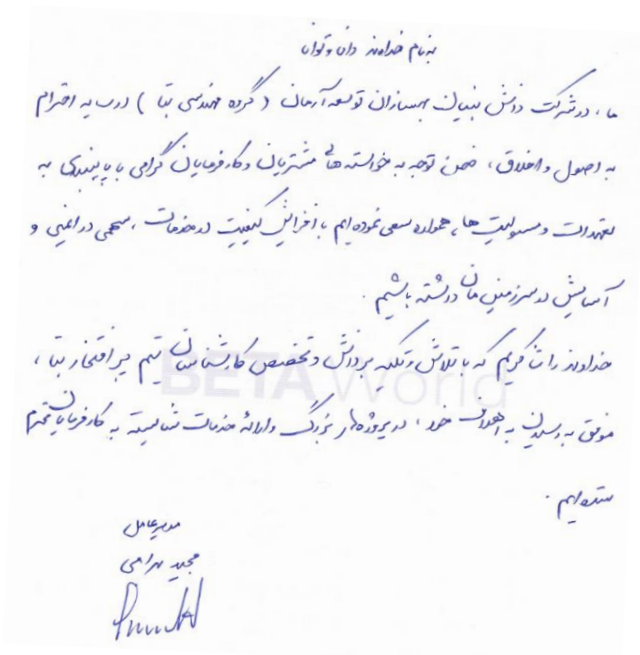 به نام خداوند دانا و توانا
ما، در شرکت دانش بنیان بهسازان توسعه آرمان (گروه مهندسی بتا) در سایه احترام
به اصول و اخلاق، ضمن توجه به خواسته های مشتریان و کارفرمایان گرامی با پایبندی به
تعهدات و مسئولیت ها، همواره سعی نموده ایم با افزایش کیفیت در خدمات، سهمی در ایمنی و
آسایش در سرزمین مان داشته باشیم.
خداوند را شاکریم که با تلاش و تکیه بر دانش و تخصص کارشناسان تیم پر افتخار بتا،
BETA World
موفق به رسیدن به اهداف خود، در پروژه های بزرگ و ارائه خدمات شایسته به کارفرمایان محترم
شده ایم.
مدیر عامل
مجید